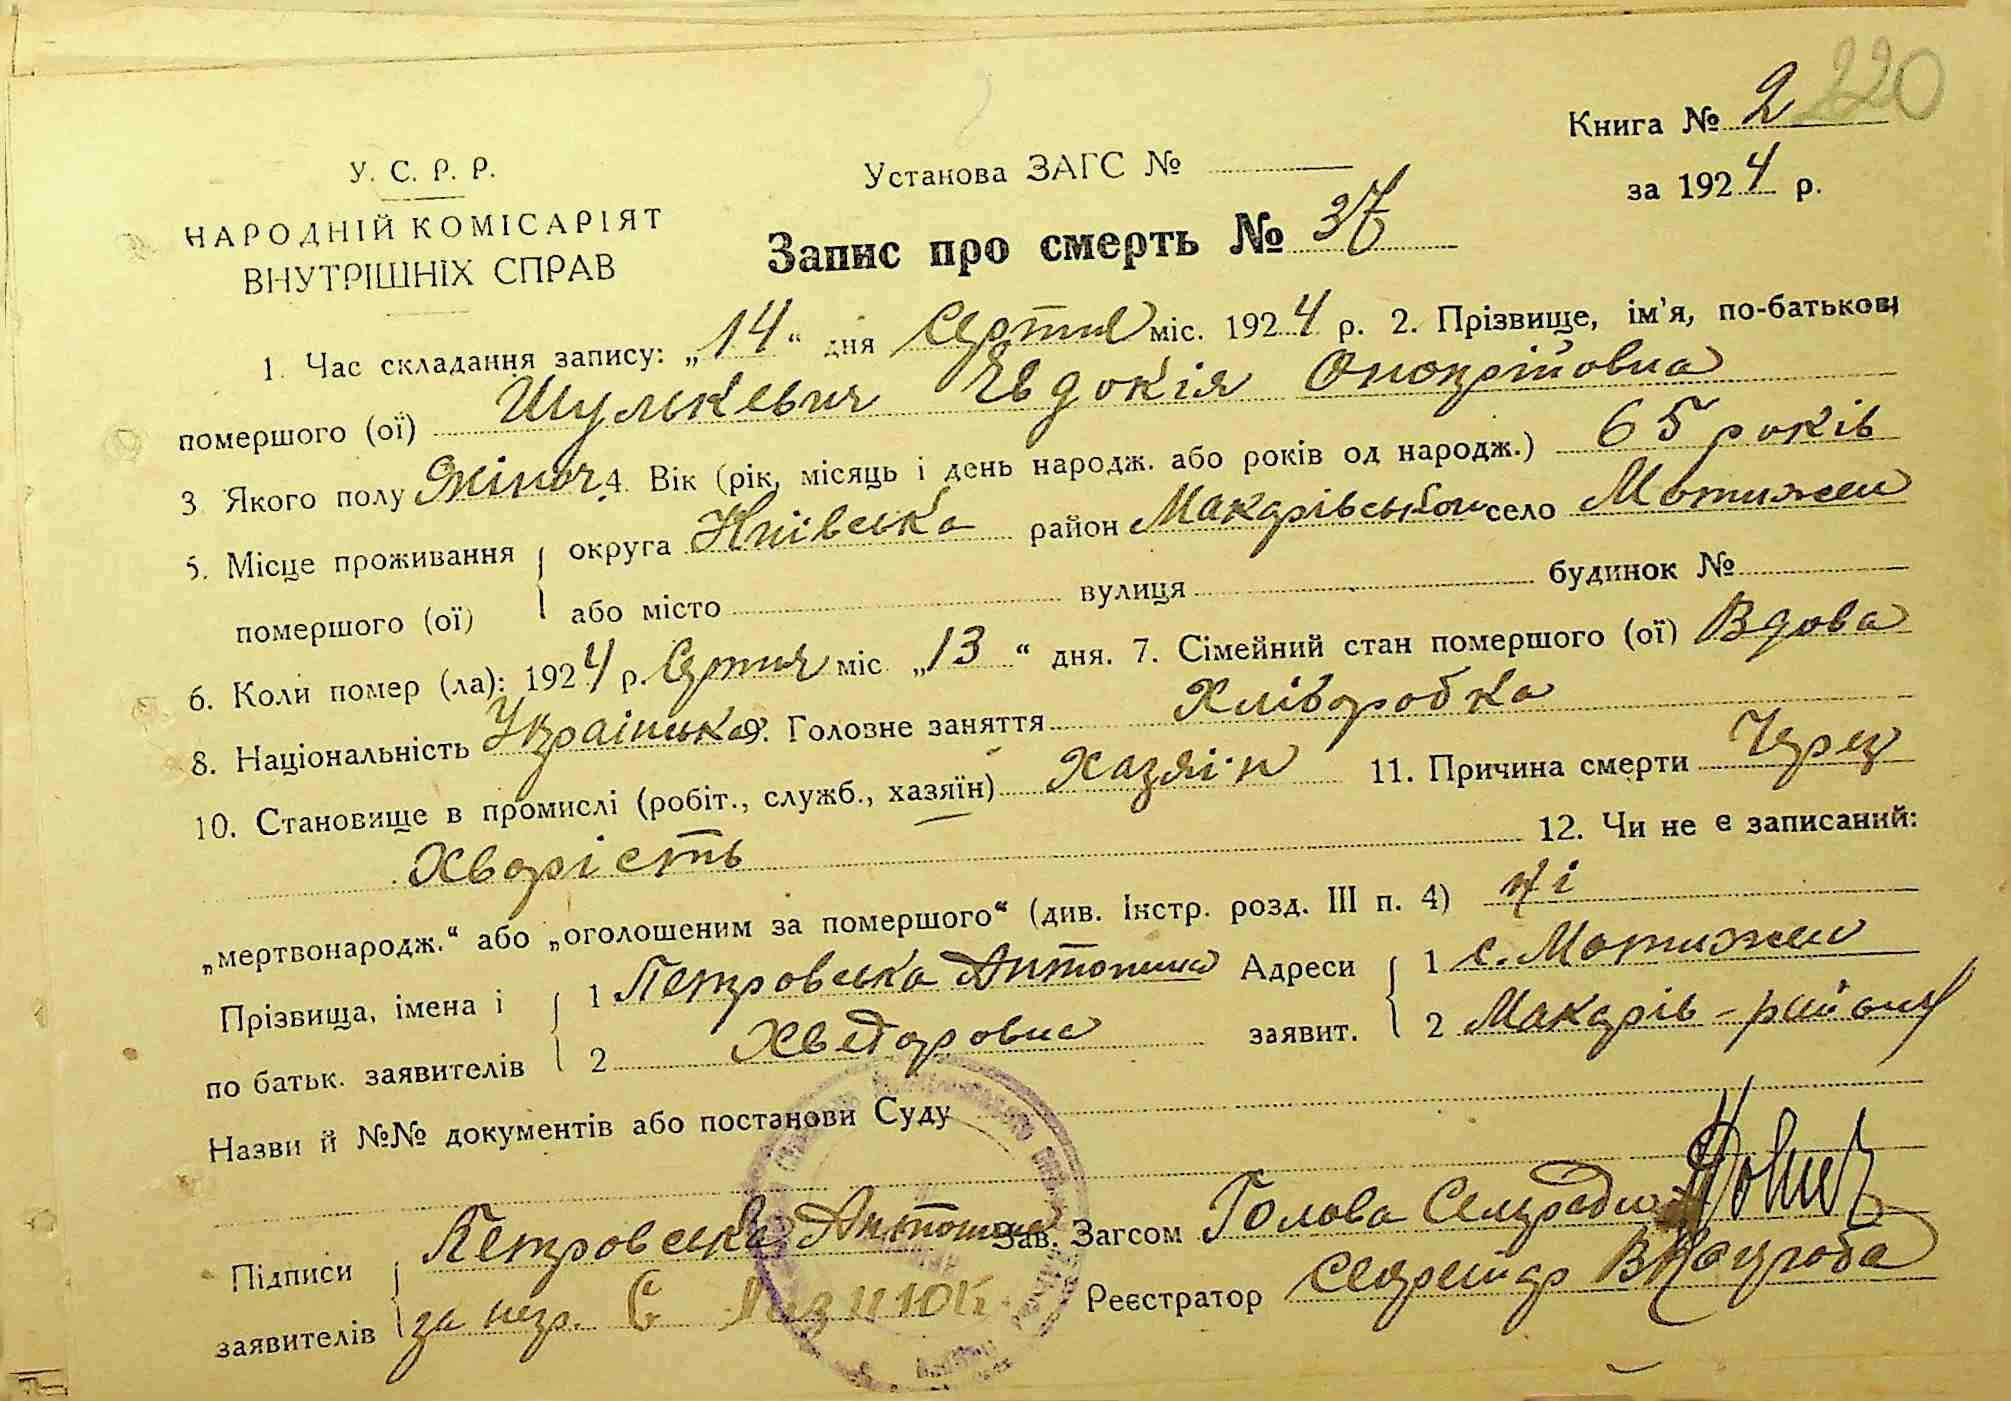 220
Книга № 2
У. С. Р. Р.
Установа ЗАГС №
за 1924 р.
НАРОДНІЙ КОМІСАРІЯТ
ВНУТРІШНІХ СПРАВ
Запис про смерть № 37
1. Час складання запису: „14“ дня Серпня міс. 1924 р. 2. Прізвище, ім'я, по-батькові
помершого (ої) Шулькевич Явдокія Онопрійовна
3 Якого полу Жіноч. 4. Вік (рік, місяць і день народж. або років од народж.) 65 років
5. Місце проживання округа Київська район Макарівський село Мотижен
помершого (ої) або місто вулиця будинок №
6. Коли помер (ла): 1924 р. Серпня міс „13“ дня. 7. Сімейний стан помершого (ої) Вдова
8. Національність Українська 9. Головне заняття Хліборобка
10. Становище в промислі (робіт., служб., хазяїн) Хазяїн 11. Причина смерти Через
Хворість 12. Чи не є записаний:
„мертвонародж.“ або „оголошеним за помершого“ (див. Інстр. розд. III п. 4) ні
Прізвища, імена і 1 Петровська Антонина Адреси 1 с. Мотижен
по батьк. заявителів 2 Хведоровна заявит. 2 Макарів-район
Назви й №№ документів або постанови Суду
Підписи Петровська Антонина Зав. Загсом Голова Сельради
заявителів за негр. Реєстратор Секретар